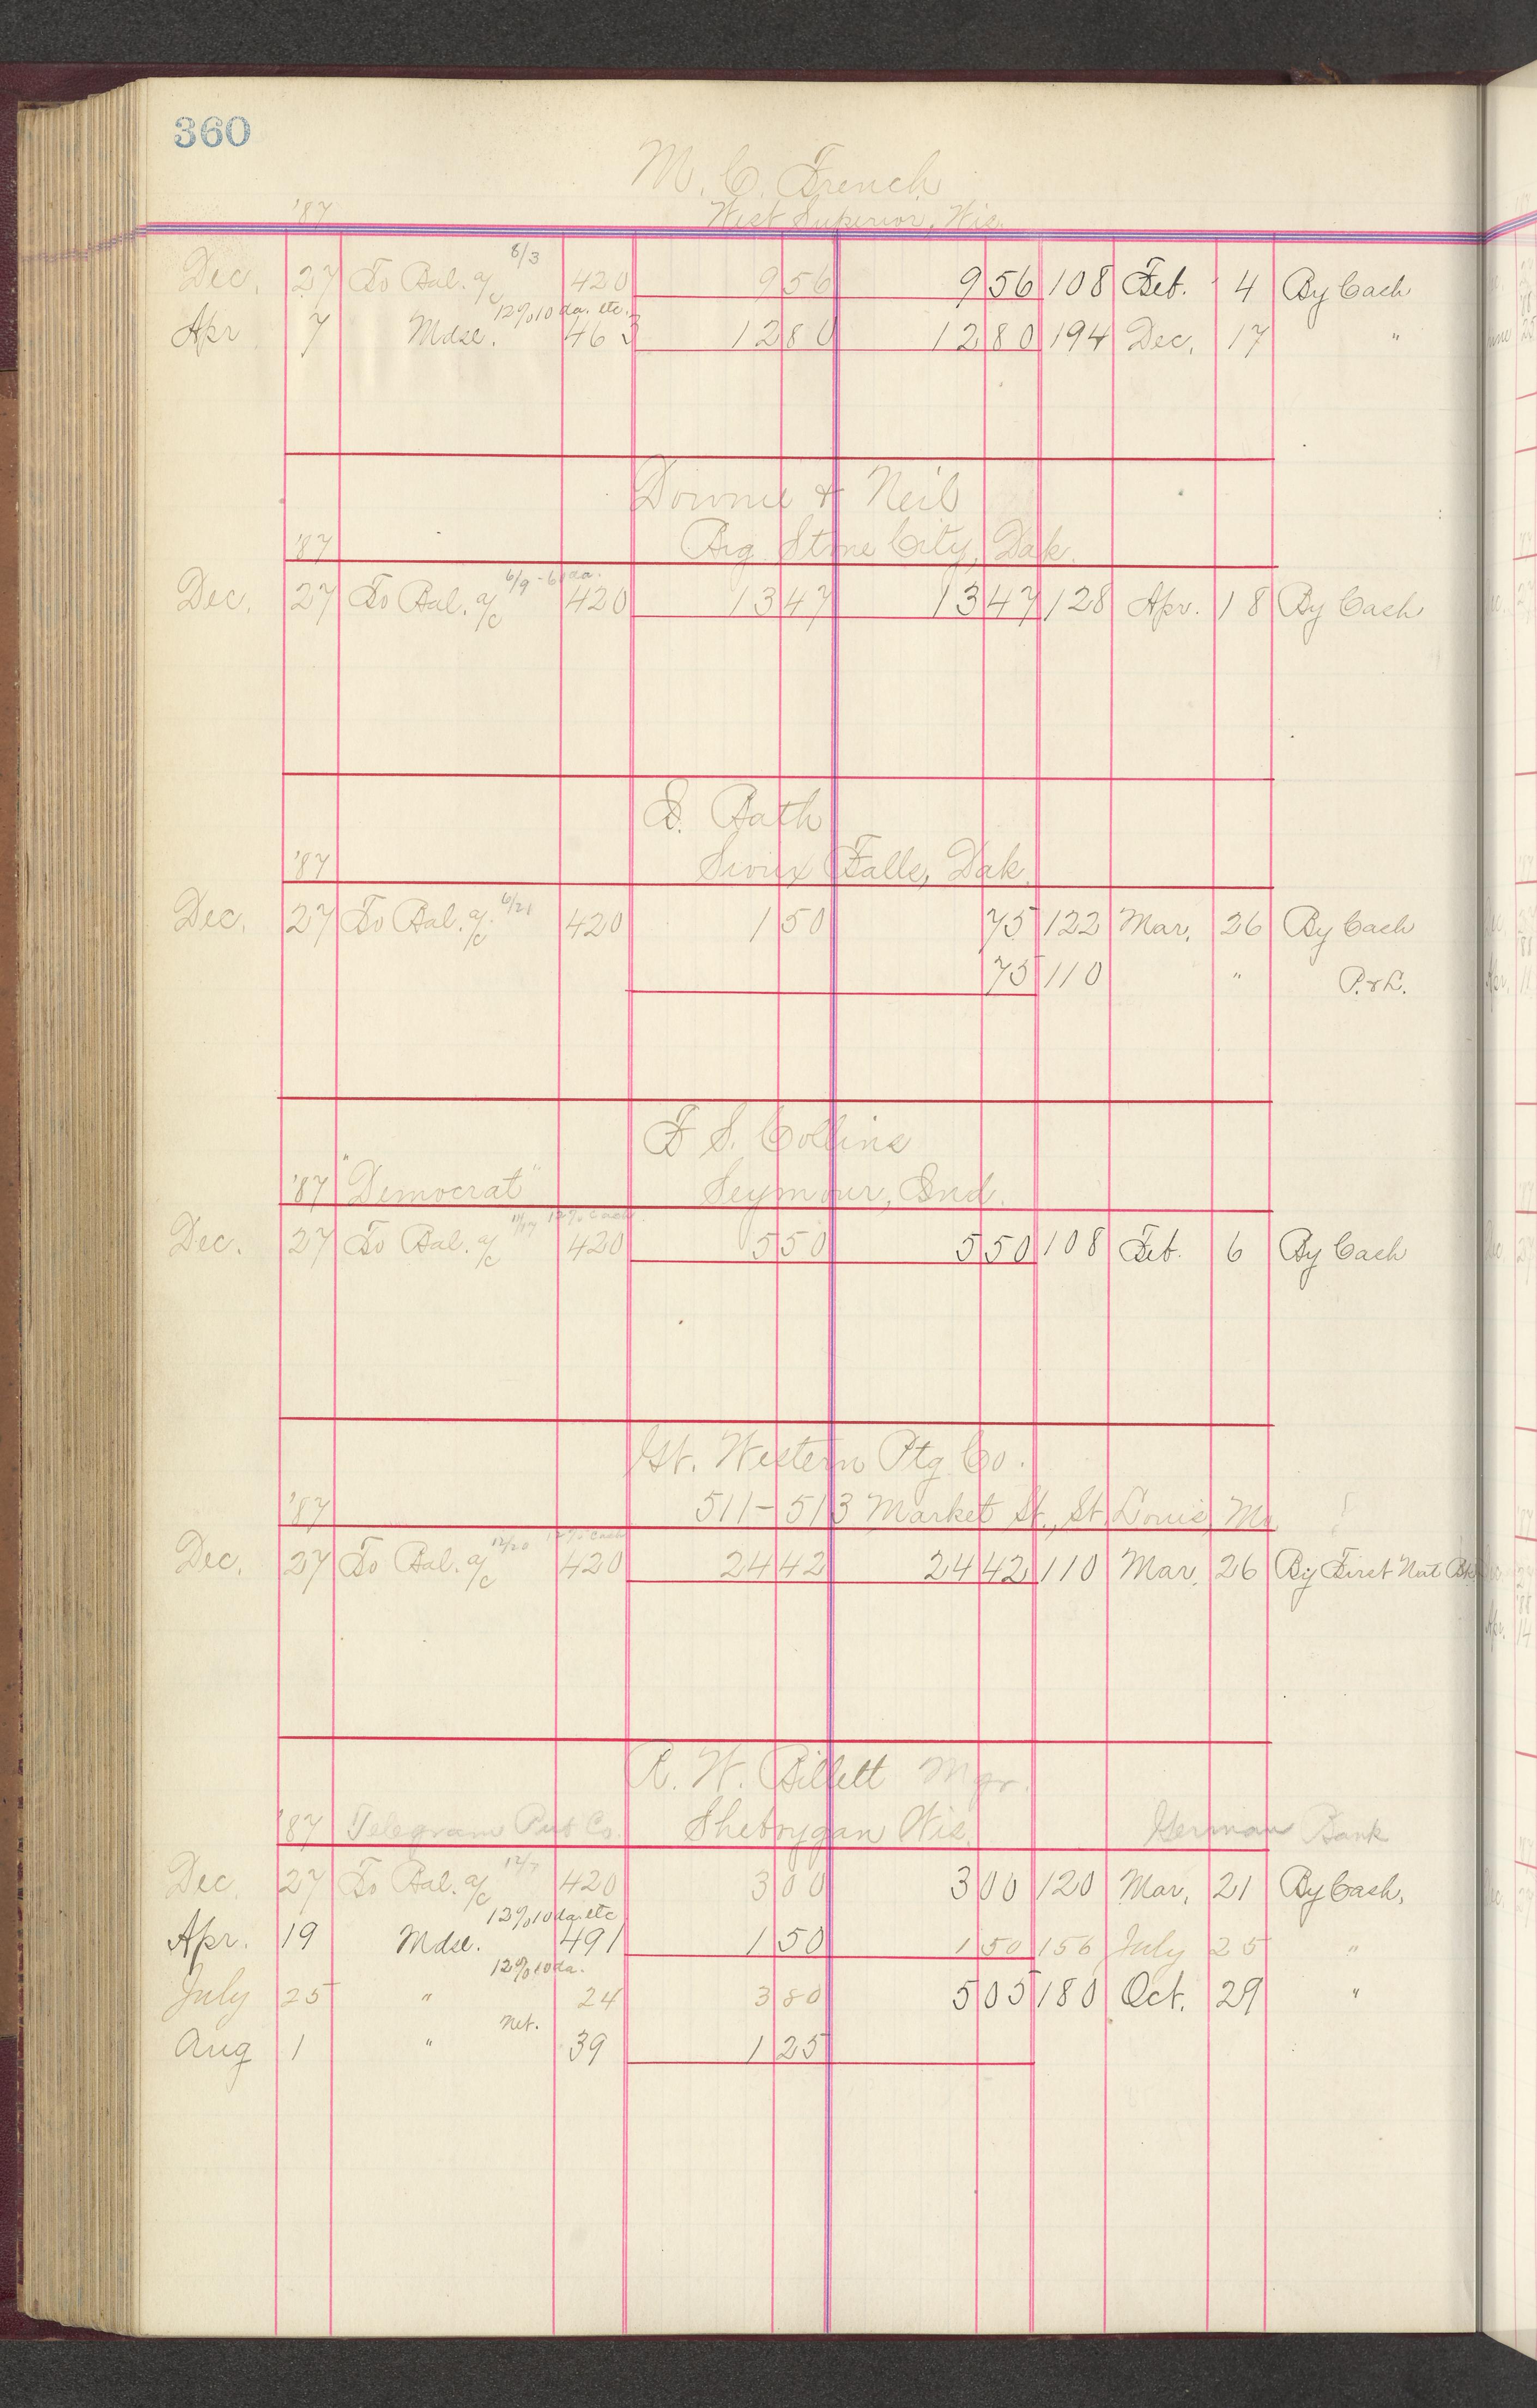 360
M. C. French
'87 West Superior, Wis.
8/3
Dec. 27 To Bal. a/c 420 9 56 9 56 108 Feb. 4 By Cash
12% 10 da. etc.
Apr 7 Mdse. 463 12 80 12 80 194 Dec. 17 "
Downie & Neil
'87 Big Stone City, Dak.
6/9 - 60 da.
Dec. 27 To Bal. a/c 420 13 47 13 47 128 Apr. 18 By Cash
S. Bath
'87 Sioux Falls, Dak.
6/21
Dec. 27 To Bal. a/c 420 1 50 75 122 Mar. 26 By Cash
75 110 " P. & L.
F. S. Collins
'87 "Democrat" Seymour, Ind.
12% cash
Dec. 27 To Bal. a/c 420 5 50 5 50 108 Feb. 6 By Cash
Gt. Western Ptg Co.
'87 511-513 Market St., St Louis, Mo
12/20 12% cash
Dec. 27 To Bal. a/c 420 24 42 24 42 110 Mar. 26 By First Nat Bk
R. W. Billett Mgr.
'87 Telegram Pub Co. Sheboygan Wis. German Bank
12/7
Dec. 27 To Bal. a/c 420 3 00 3 00 120 Mar. 21 By Cash,
12% 10 da. etc
Apr. 19 Mdse. 491 1 50 1 50 156 July 25 "
12% 10 da.
July 25 " 24 3 80 5 05 180 Oct. 29 "
Net.
Aug 1 " 39 1 25